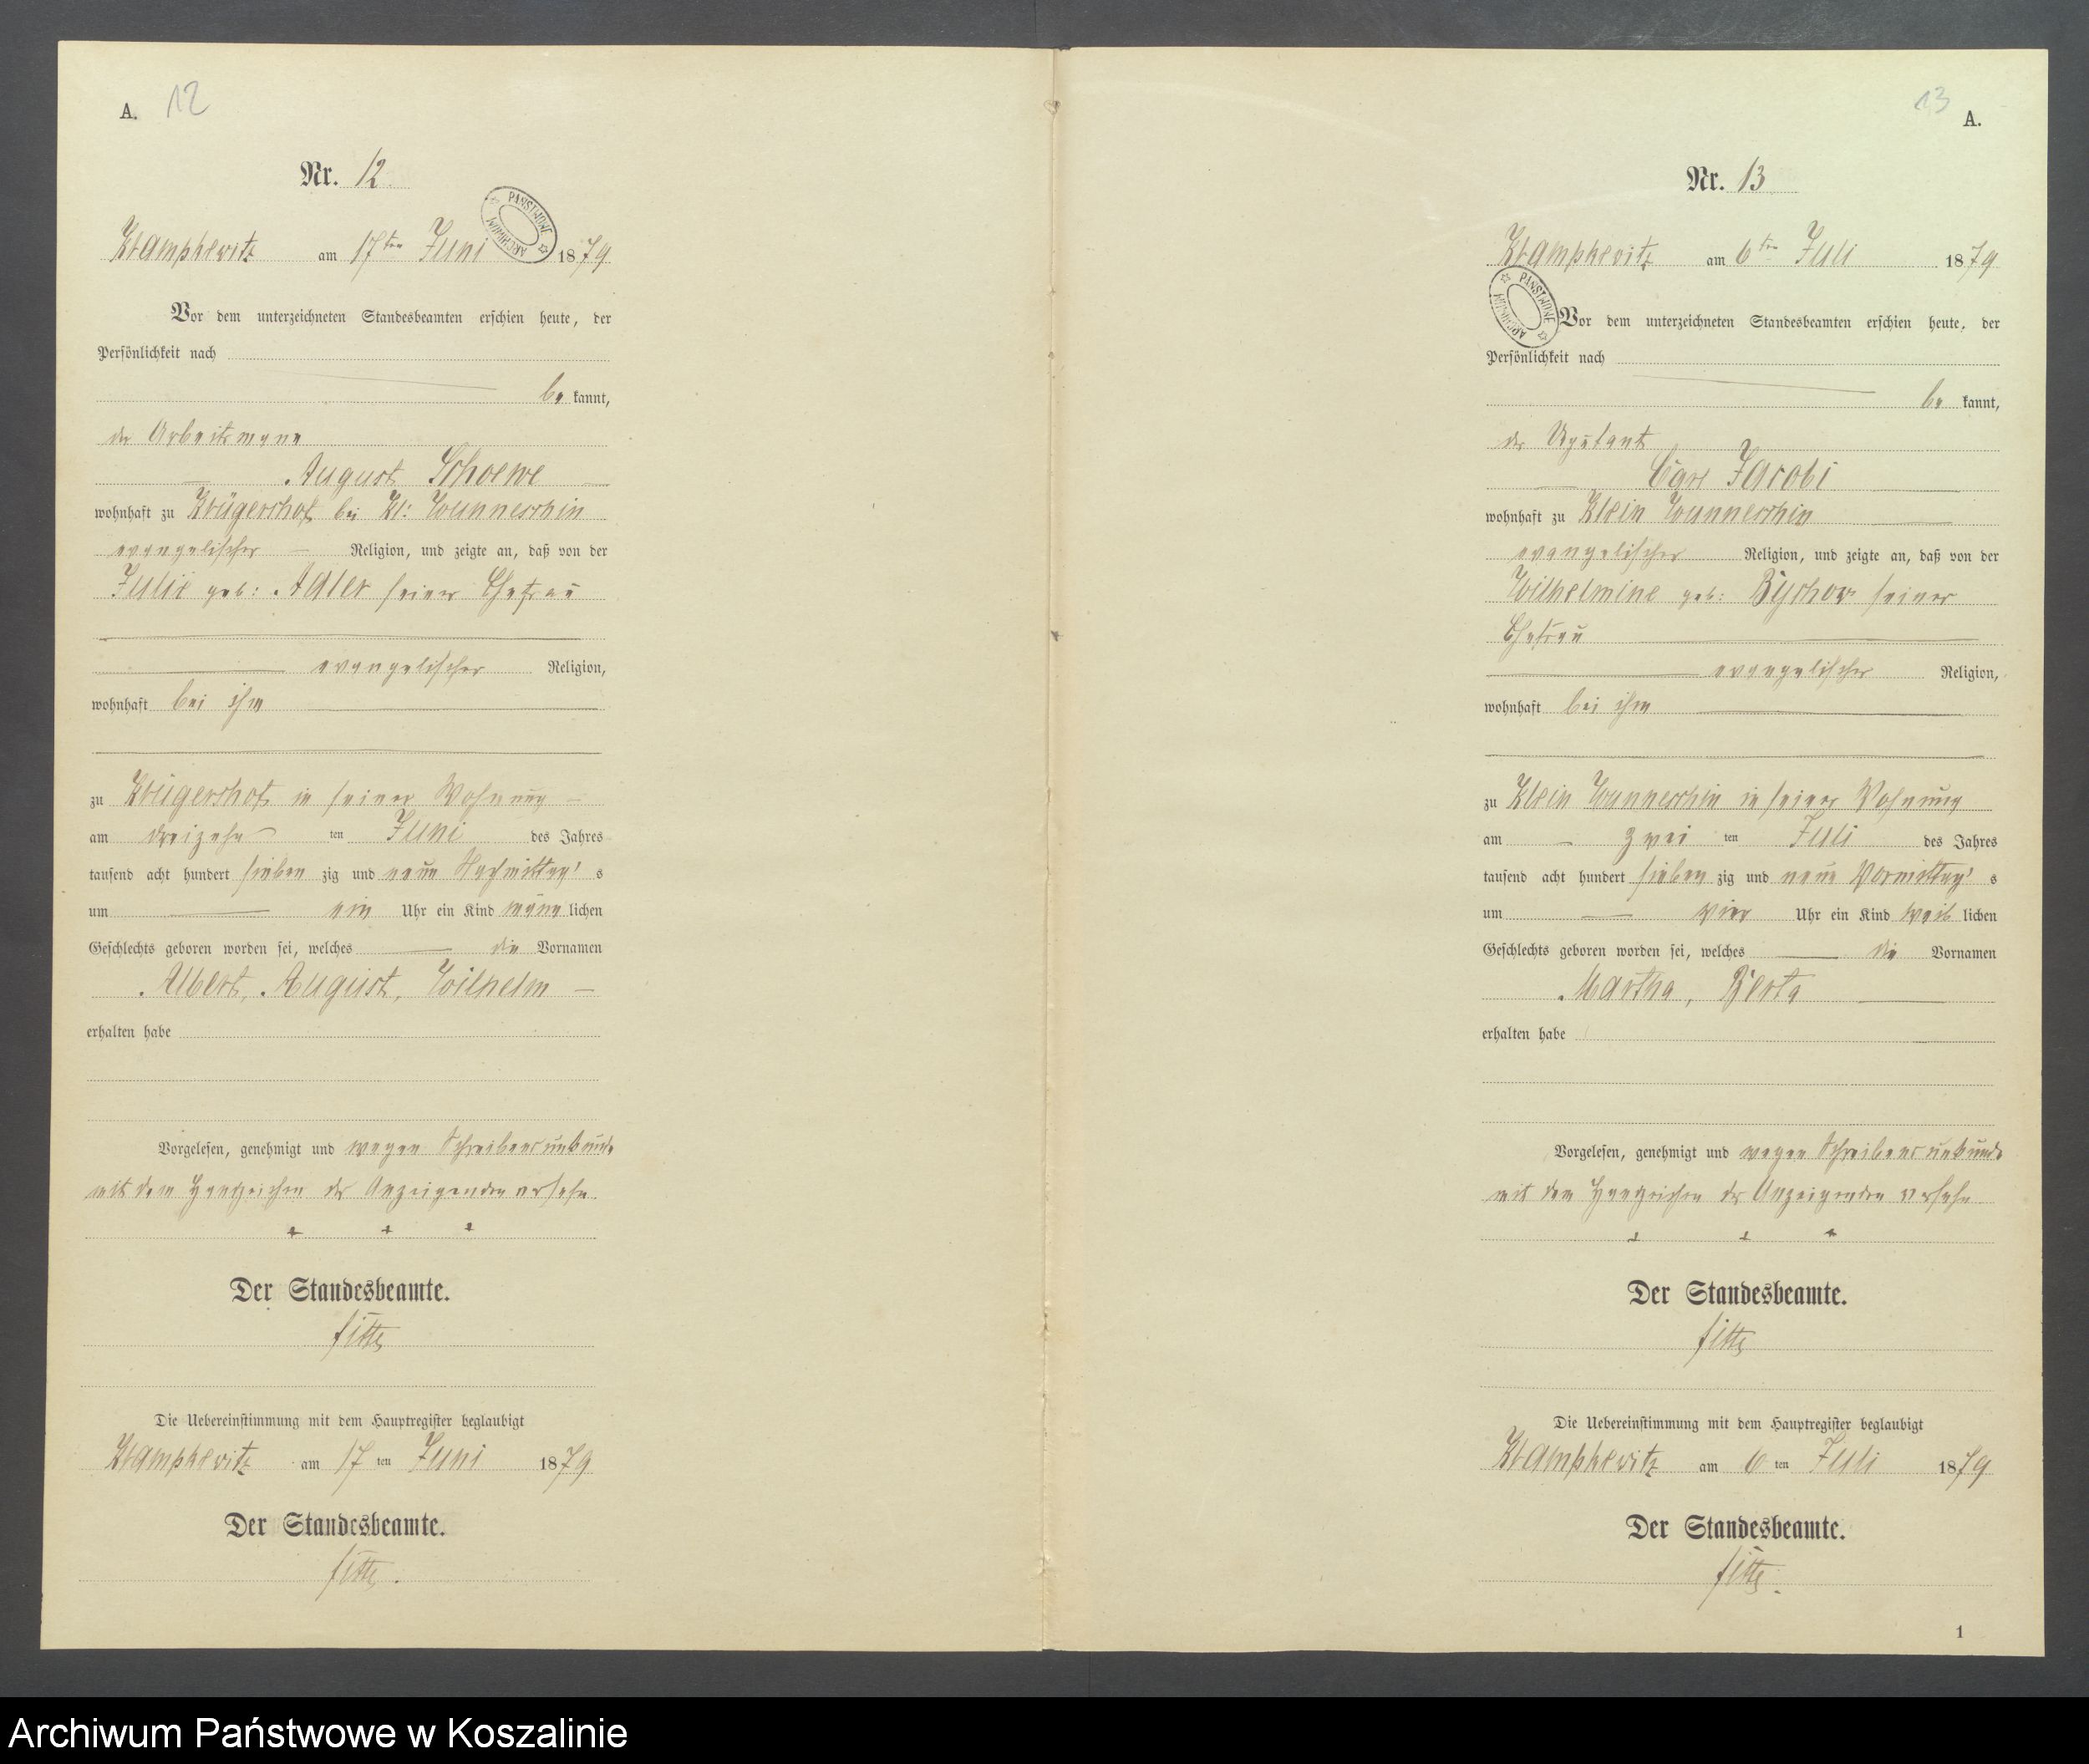 A. 12
Nr. 12.
PAŃSTWOWE ARCHIWUM
Krampkewitz am 17ten Juni 1879
Vor dem unterzeichneten Standesbeamten erschien heute, der
Persönlichkeit nach
be kannt,
der Arbeitsmann
August Schoewe
wohnhaft zu Krügershof bei Kl: Wunneschin
evangelischer Religion, und zeigte an, daß von der
Julie geb: Adler seiner Ehefrau
evangelischer Religion,
wohnhaft bei ihm
zu Krügershof in seiner Wohnung
am dreizehn ten Juni des Jahres
tausend acht hundert sieben zig und neun Nachmittag's
um ein Uhr ein Kind männ lichen
Geschlechts geboren worden sei, welches die Vornamen
Albert, August, Wilhelm
erhalten habe
Vorgelesen, genehmigt und wegen Schreibensunkunde
mit dem Handzeichen des Anzeigenden versehn
+ + +
Der Standesbeamte.
Die Uebereinstimmung mit dem Hauptregister beglaubigt
Krampkewitz am 17 ten Juni 1879
Der Standesbeamte.
13
A.
Nr. 13
Krampkewitz am 6ten Juli 1879
PAŃSTWOWE ARCHIWUM
Vor dem unterzeichneten Standesbeamten erschien heute, der
Persönlichkeit nach
be kannt,
der
Carl Jacobi
wohnhaft zu Klein Wunneschin
evangelischer Religion, und zeigte an, daß von der
Wilhelmine geb: Bychow seiner
Ehefrau
evangelischer Religion,
wohnhaft bei ihm
zu Klein Wunneschin in seiner Wohnung
am zwei ten Juli des Jahres
tausend acht hundert sieben zig und neun Vormittag's
um vier Uhr ein Kind weib lichen
Geschlechts geboren worden sei, welches die Vornamen
Martha, Berta
erhalten habe
Vorgelesen, genehmigt und wegen Schreibensunkunde
mit dem Handzeichen des Anzeigenden versehn
+ + +
Der Standesbeamte.
Die Uebereinstimmung mit dem Hauptregister beglaubigt
Krampkewitz am 6 ten Juli 1879
Der Standesbeamte.
1
Archiwum Państwowe w Koszalinie